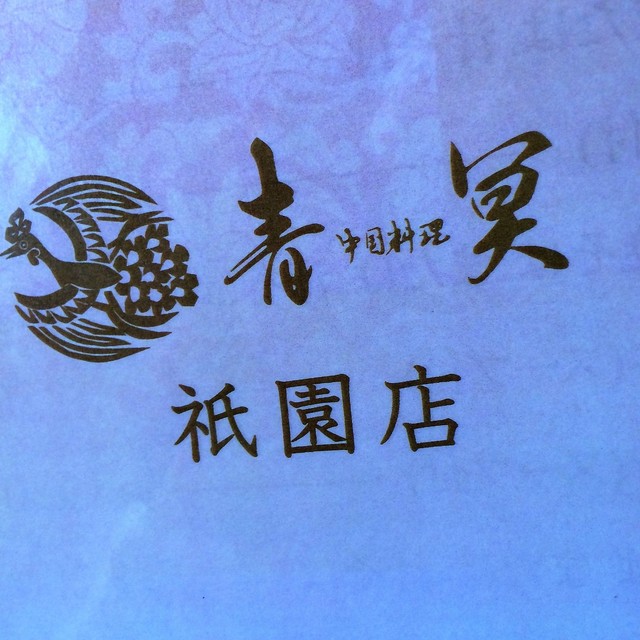 青冥 中国料理
祇園店